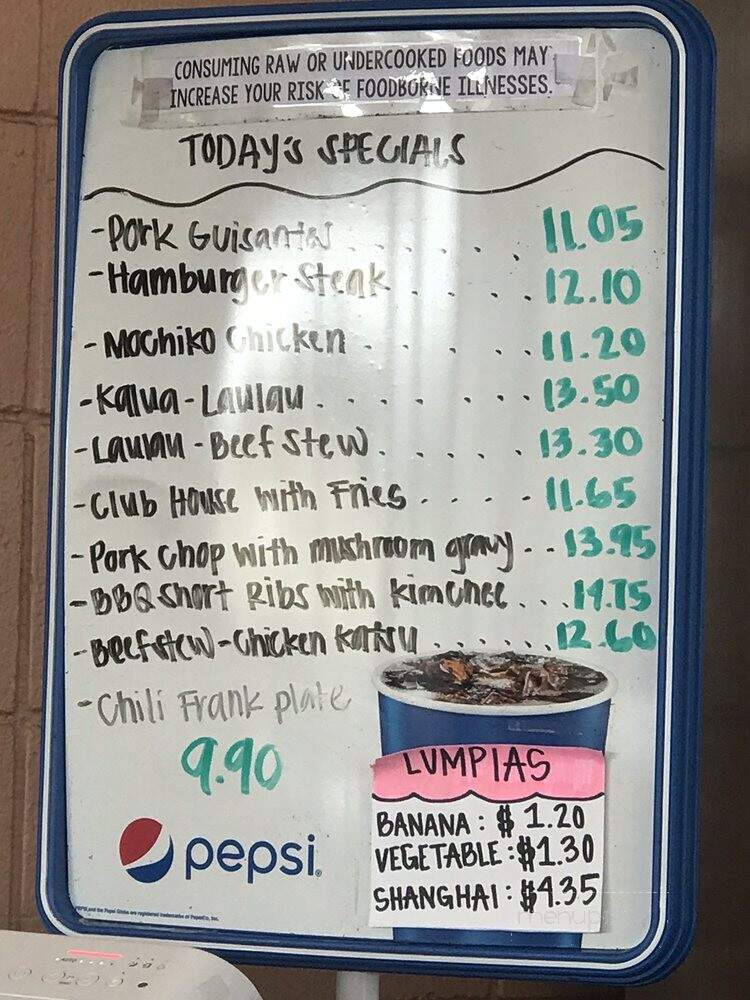 CONSUMING RAW OR UNDERCOOKED FOODS MAY
INCREASE YOUR RISK OF FOODBORNE ILLNESSES.
TODAY'S SPECIALS
- Pork Guisantes . . . . 11.05
- Hamburger Steak . . . 12.10
- Mochiko Chicken . . . . . 11.20
- Kalua - Laulau . . . . . . 13.50
- Laulau - Beef Stew . . . . . 13.30
- Club House with Fries . . . - 11.65
- Pork Chop with mushroom gravy - - 13.95
- BBQ Short Ribs with kimchee . . . 14.75
- Beef stew - Chicken Katsu . . . . . . 12.60
- Chili Frank plate
9.90
LUMPIAS
BANANA : $ 1.20
VEGETABLE : $1.30
SHANGHAI : $4.35
pepsi
menupix